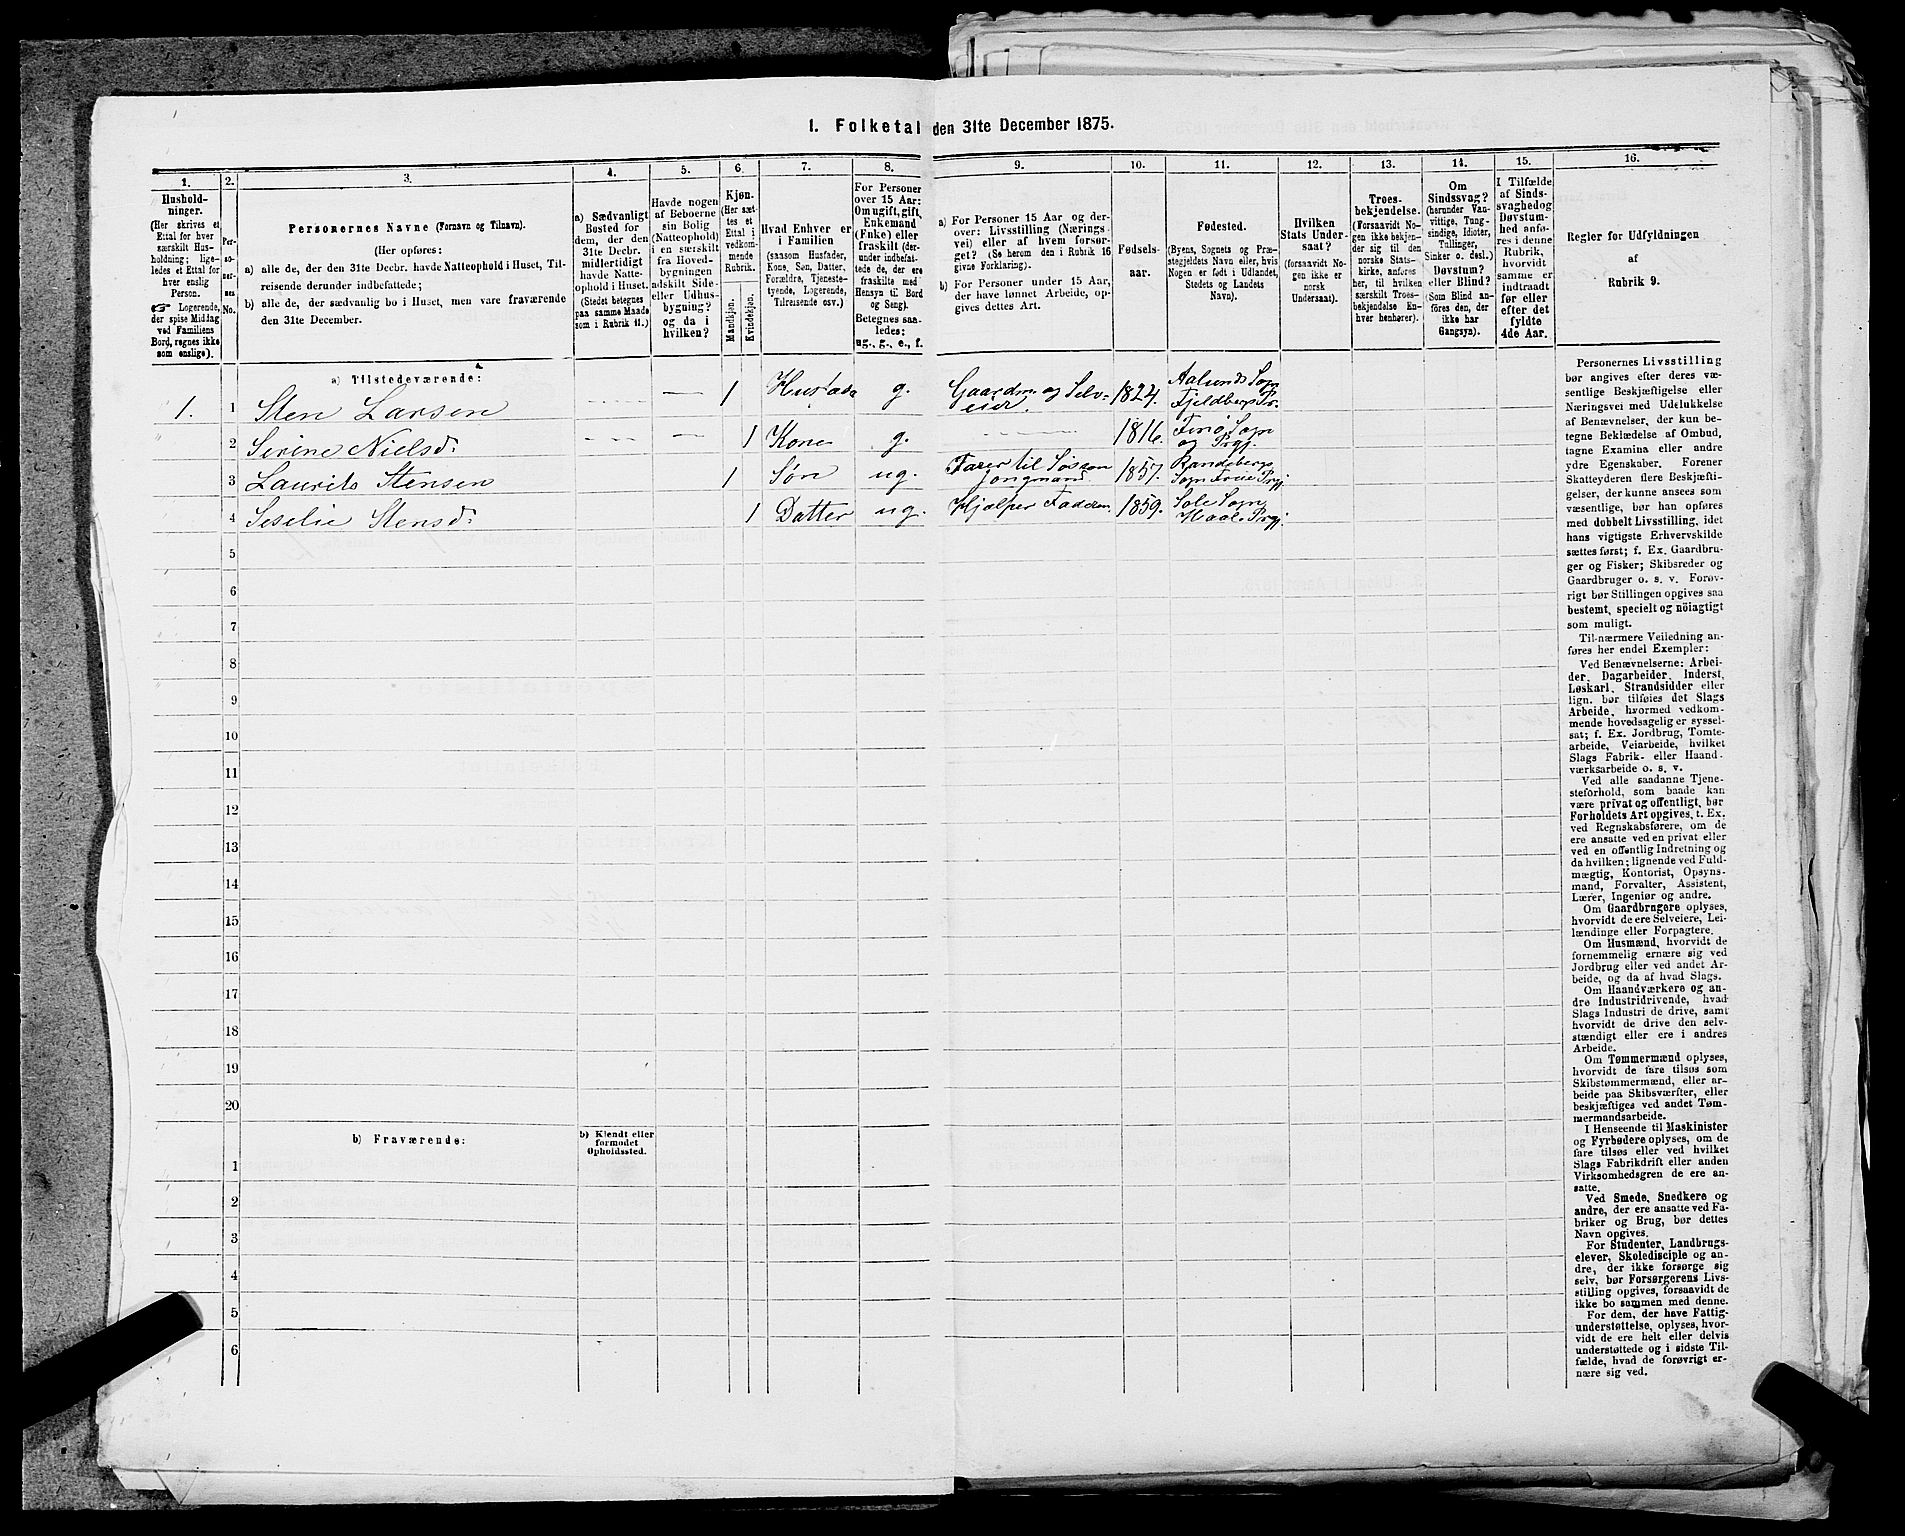 1. Folketal den 31te December 1875.
1.
2.
3.
4.
5.
6.
7.
8.
9.
10.
11.
12.
13.
14.
15.
16.
Hushold-
ninger.
(Her skrives et
Ettal for hver
særskilt Hus-
holdning; lige-
ledes et Ettal for
hver enslig
Person.
☞ Logerende,
der spise Middag
ved Familiens
Bord, regnes ikke
som enslige).
Per-
so-
ner-
nes
No.
Personernes Navne (Fornavn og Tilnavn).
(Her opføres:
a) alle de, der den 31te Decbr. havde Natteophold i Huset, Til-
reisende derunder indbefattede;
b) alle de, der sædvanlig bo i Huset, men vare fraværende
den 31te December.
a) Sædvanligt
Bosted for
dem, der den
31te Decbr.
midlertidigt
havde Natte-
ophold i Huset.
(Stedet betegnes
paa samme Maade
som i Rubrik 11.)
Havde nogen
af Beboerne
sin Bolig
(Natteophold)
i en særskilt
fra Hoved-
bygningen
adskilt Side-
eller Udhus-
bygning?
og da i
hvilken?
Kjøn.
(Her sæt-
tes et
Ettal i
vedkom-
mende
Rubrik.
Mandkjøn.
Kvindekjøn.
Hvad Enhver er
i Familien
(saasom Husfader,
Kone, Søn, Datter,
Forældre, Tjeneste-
tyende, Logerende,
Tilreisende osv.)
For Personer
over 15 Aar:
Om ugift, gift,
Enkemand
(Enke) eller
fraskilt (der-
under indbefat-
tede de, der ere
fraskilte med
Hensyn til Bord
og Seng).
Betegnes saa-
ledes:
ug., g., e., f.
a) For Personer 15 Aar og der-
over: Livsstilling (Nærings-
vei) eller af hvem forsør-
get? (Se herom den i Rubrik 16
givne Forklaring).
b) For Personer under 15 Aar,
der have lønnet Arbeide, op-
gives dettes Art.
Fødsels-
aar.
Fødested.
(Byens, Sognets og Præ-
stegjeldets Navn eller, hvis
Nogen er født i Udlandet,
Stedets og Landets
Navn).
Hvilken
Stats Under-
saat?
(forsaavidt No-
gen ikke er
norsk
Undersaat).
Troes-
bekjendelse.
(Forsaavidt No-
gen ikke bekjen-
der sig til den
norske Stats-
kirke, anføres
her, til hvilken
særskilt Troes-
bekjendelse En-
hver henhører).
Om
Sindssvag?
(herunder Van-
vittige, Tung-
sindige, Idioter,
Tullinger,
Sinker o. desl.)
Døvstum?
eller Blind?
(Som Blind an-
føres den, der
ikke har
Gangsyn).
I Tilfælde
af Sinds-
svaghed og
Døvstum-
hed anfø-
res i denne
Rubrik,
hvorvidt
samme er
indtraadt
før eller
efter det
fyldte
4de Aar.
Regler for Udfyldningen
af
Rubrik 9.
a) Tilstedeværende:
1. 1 Sten Larsen 1 g. Gaardm. og Selv-
eier. 1824. Sogn
Fjeldberg Pr.
2 Serine Nielsd. 1 Kone g. 1816. Sogn
og Prgj.
3 Laurits Stensen 1 Søn ug. Farer til Søs som
Jongmand 1857. Randeberg
Sogn Prgj
4 Seselie Stensd. 1 Datter ug. Hjælper Faderen 1859. Sole Sogn
Haalø Prgj.
5
6
7
8
9
10
11
12
13
14
15
16
17
18
19
20
b) Fraværende:
b) Kjendt eller
formodet
Opholdssted.
1
2
3
4
5
6
Personernes Livsstilling
bør angives efter deres væ-
sentlige Beskjæftigelse eller
Næringsvei med Udelukkelse
af Benævnelser, der kun be-
tegne Beklædelse af Ombud,
tagne Examina eller andre
ydre Egenskaber. Forener
Skatteyderen flere Beskjæfti-
gelser, der kunne ansees som
væsentlige, bør han opføres
med dobbelt Livsstilling, idet
hans vigtigste Erhvervskilde
sættes først; f. Ex. Gaardbru-
ger og Fisker; Skibsreder og
Gaardbruger o. s. v. Forøv-
rigt bør Stillingen opgives saa
bestemt, specielt og nöiagtigt
som muligt.
Til nærmere Veiledning an-
føres her endel Exempler:
Ved Benævnelserne: Arbei-
der, Dagarbeider, Inderst,
Løskarl, Strandsidder eller
lign. bør tilføies det Slags
Arbeide, hvormed vedkom-
mende hovedsagelig er syssel-
sat; f. Ex. Jordbrug, Tomte-
arbeide, Veiarbeide, hvilket
Slags Fabrik- eller Haand-
værksarbeide o. s. v.
Ved alle saadanne Tjene-
steforhold, som baade kan
være privat og offentligt, bør
Forholdets Art opgives, t. Ex.
ved Regnskabsførere, om de
ere ansatte ved en privat eller
ved en offentlig Indretning og
da hvilken; lignende ved Fuld-
mægtig, Kontorist, Opsyns-
mand, Forvalter, Assistent,
Lærer, Ingeniør og andre.
Om Gaardbrugere oplyses,
hvorvidt de ere Selveiere, Lei-
lændinge eller Forpagtere.
Om Husmænd, hvorvidt de
fornemmelig ernære sig ved
Jordbrug eller ved andet Ar-
beide, og da af hvad Slags.
Om Haandværkere og an-
dre Industridrivende, hvad
Slags Industri de drive, samt
hvorvidt de drive den selv-
stændigt eller ere i andres
Arbeide.
Om Tømmermænd oplyses,
hvorvidt de fare tilsøs som
Skibstømmermænd, eller ar-
beide paa Skibsværfter, eller
beskjæftiges ved andet Tøm-
mermandsarbeide.
I Henseende til Maskinister
og Fyrbødere oplyses, om de
fare tilsøs eller ved hvilket
Slags Fabrikdrift eller anden
Virksomhedsgren de ere an-
satte.
Ved Smede, Snedkere og
andre, der ere ansatte ved Fa-
briker og Brug, bør dettes
Navn opgives.
For Studenter, Landbrugs-
elever, Skoledisciple og an-
dre, der ikke forsørge sig
selv, bør Forsørgerens Livs-
stilling opgives, forsaavidt de
ikke bo sammen med denne.
For dem, der have Fattig-
understøttelse, oplyses, hvor-
vidt de ere helt eller delvis
understøttede og i sidste Til-
fælde, hvad de forøvrigt er-
nære sig ved.